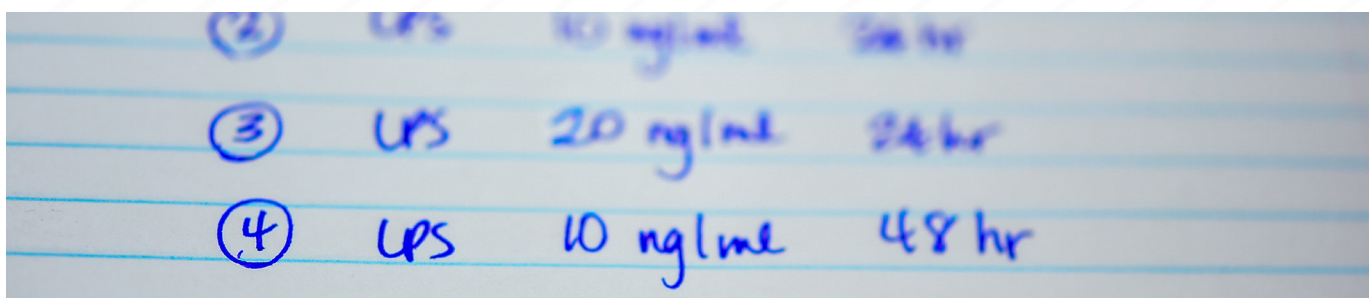 ② LPS 10 ng/ml 24 hr
③ LPS 20 ng/ml 24 hr
④ LPS 10 ng/ml 48 hr